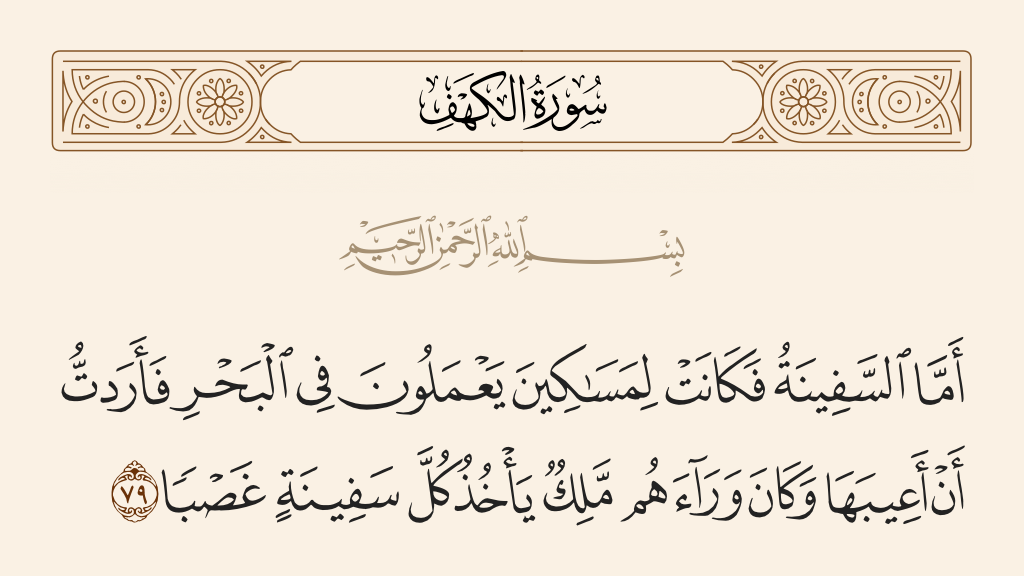 سُورَةُ الكَهۡفِ
بِسۡمِ ٱللَّهِ ٱلرَّحۡمَٰنِ ٱلرَّحِيمِ
أَمَّا ٱلسَّفِينَةُ فَكَانَتۡ لِمَسَٰكِينَ يَعۡمَلُونَ فِي ٱلۡبَحۡرِ فَأَرَدتُّ
أَنۡ أَعِيبَهَا وَكَانَ وَرَآءَهُم مَّلِكٞ يَأۡخُذُ كُلَّ سَفِينَةٍ غَصۡبٗا ٧٩